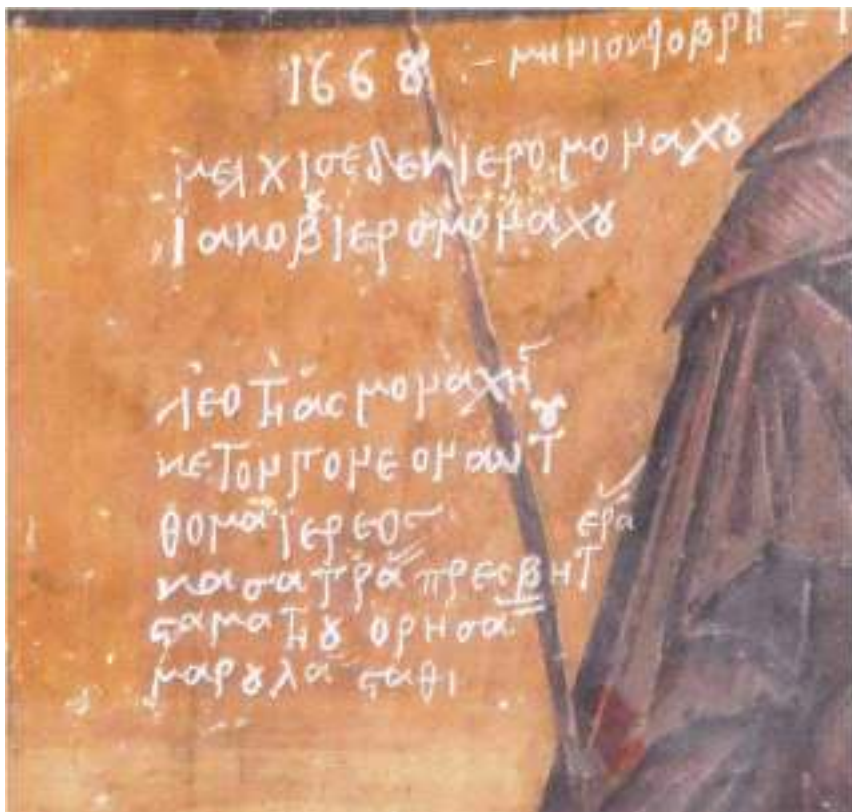 1668 :- μηνι οκτοβρη - 1
μελχισεδεκ ιερομοναχȣ
ιακοβȣ ιερομοναχȣ
λεοτιας μοναχη
κε τον γονεον αυτȣ
θομα ιερεος
κασατρα πρεσβητερα
σταματηȣ ορησα
μαρȣλα σταθι